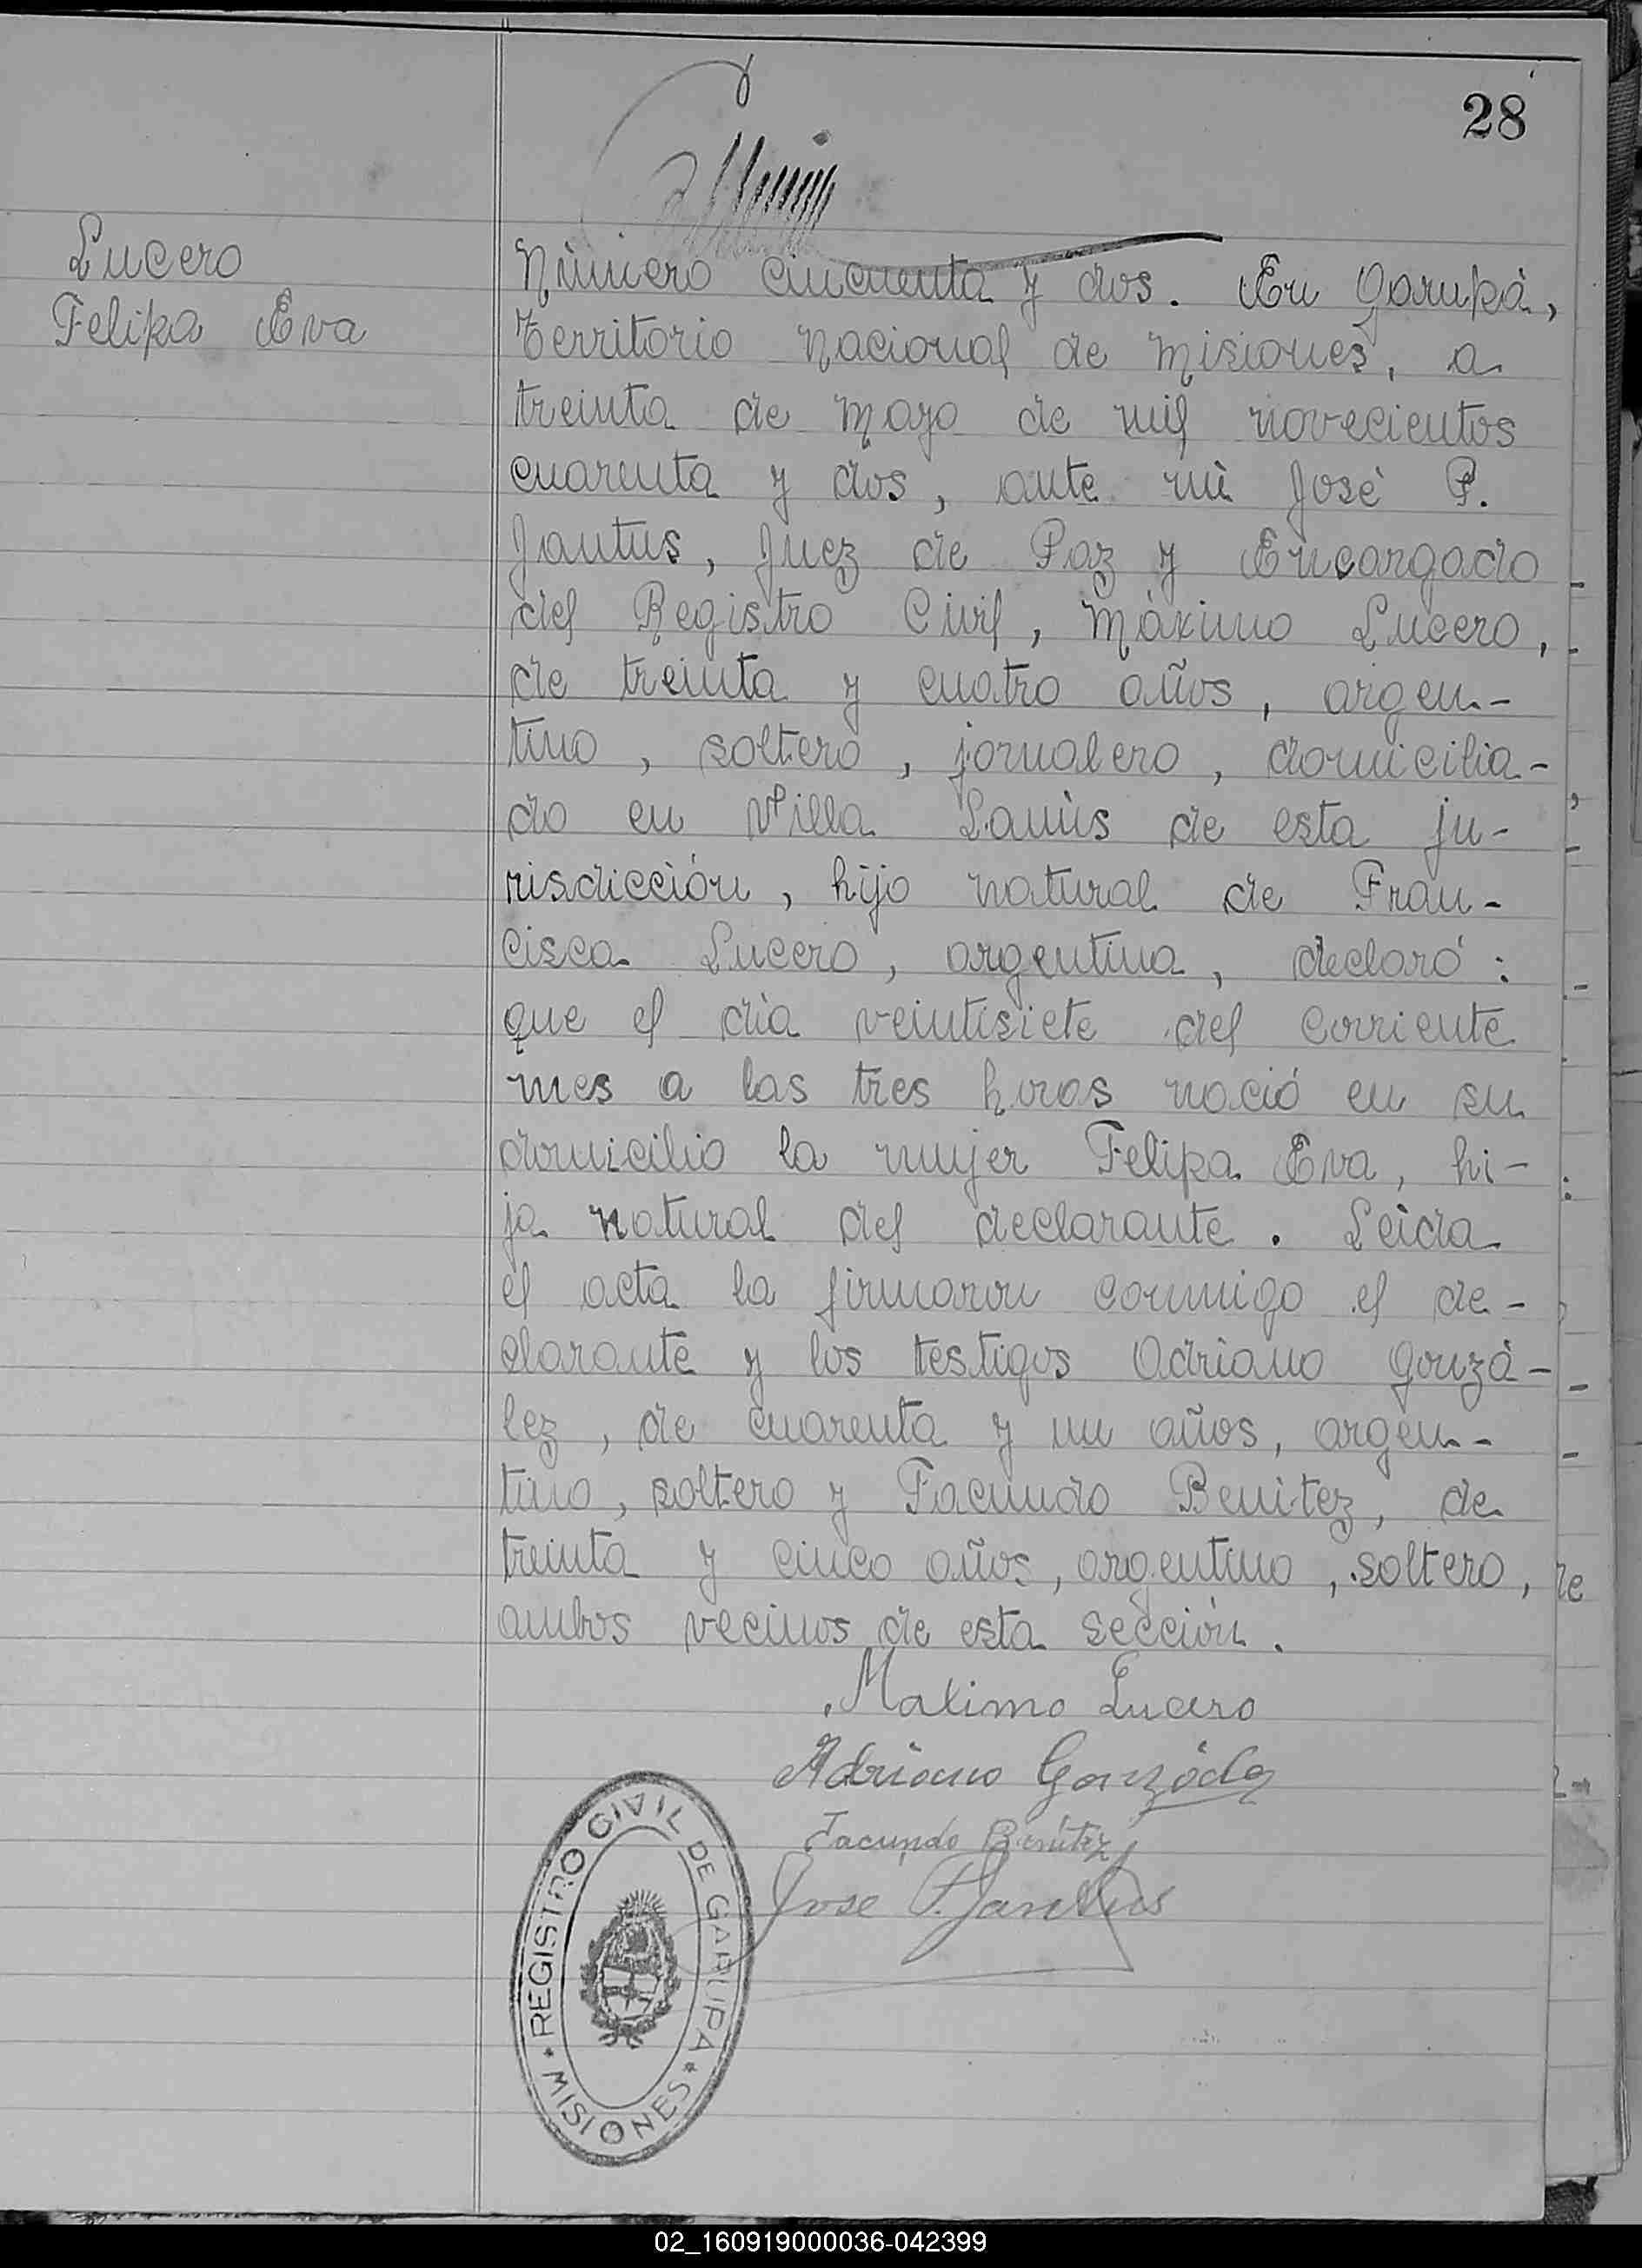 28
Lucero
Felipa Eva
Número cincuenta y dos. En Garupá,
territorio nacional de Misiones, a
treinta de Mayo de mil novecientos
cuarenta y dos, ante mí José P.
Jantus, Juez de Paz y Encargado
del Registro Civil, Máximo Lucero,
de treinta y cuatro años, argen-
tino, soltero, jornalero, domicilia-
do en Villa Lanús de esta ju-
risdicción, hijo natural de Fran-
cisca Lucero, argentina, declaró:
que el día veintisiete del corriente
mes a las tres horas nació en su
domicilio la mujer Felipa Eva, hi-
ja natural del declarante. Leída
el acta la firmaron conmigo el de-
clarante y los testigos Adriano Gonzá-
lez, de cuarenta y un años, argen-
tino, soltero y Facundo Benitez, de
treinta y cinco años, argentino, soltero,
ambos vecinos de esta sección.
Maximo Lucero
Adriano González
Facundo Benítez
Jose P. Jantus
REGISTRO CIVIL DE GARUPA
* MISIONES *
02_160919000036-042399